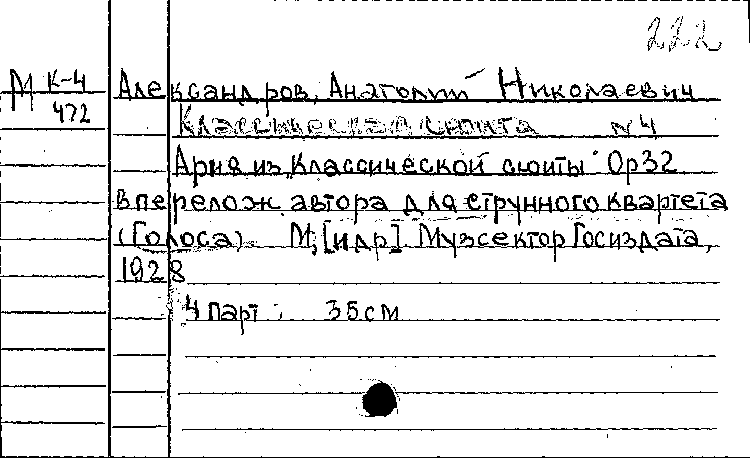 222
М К-4
472
Александров, Анатолий Николаевич
Классическая сюита № 4
Ария из "Классической сюиты" Op 32
в перелож. автора для струнного квартета
(Голоса). М, [и др] Музсектор Госиздата,
1928
4 парт. 35 см